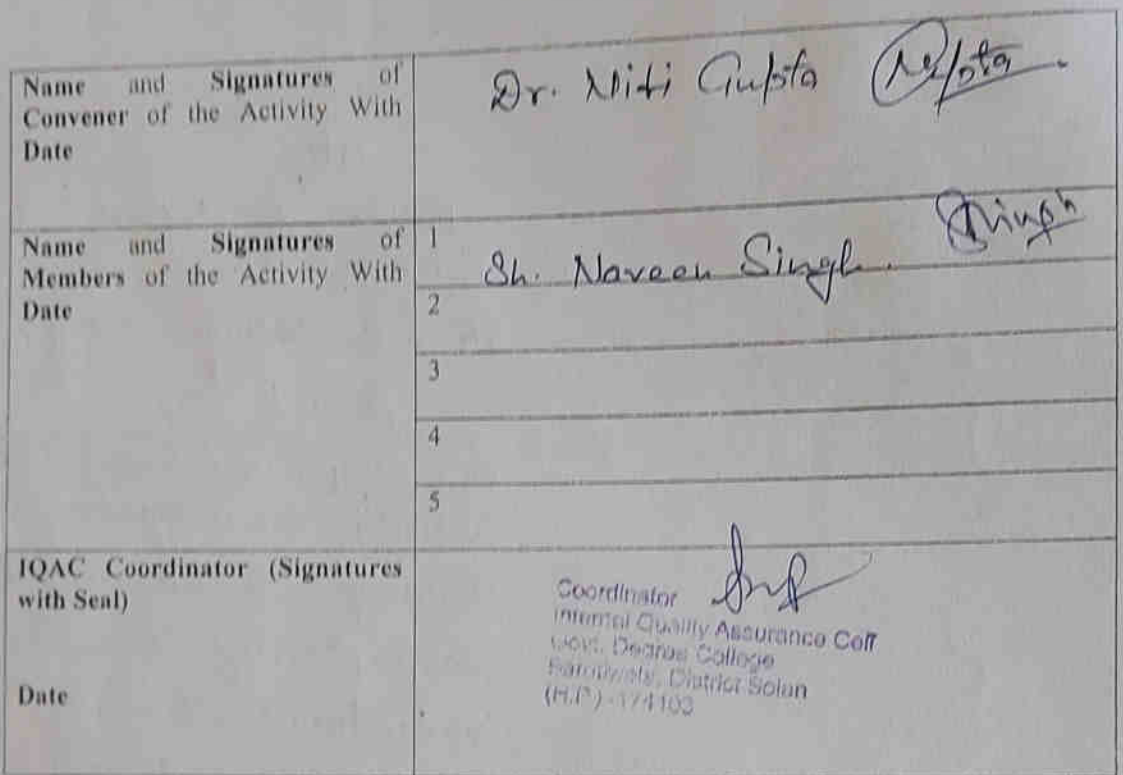 Name and Signatures of
Convener of the Activity With
Date
Dr. Niti Gupta
Name and Signatures of
Members of the Activity With
Date
1
Sh. Naveen Singh
2
3
4
5
IQAC Coordinator (Signatures
with Seal)
Date
Coordinator
Internal Quality Assurance Cell
Govt. Degree College
District Solan
(H.P.)-174103